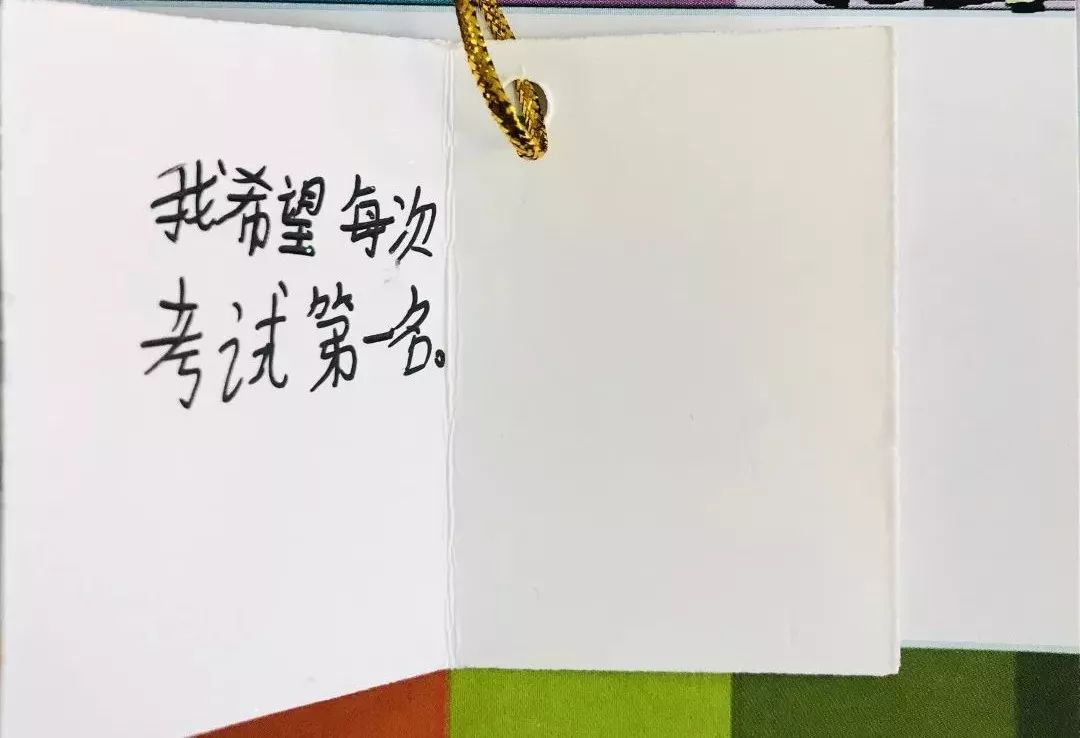 我希望每次
考试第一名。